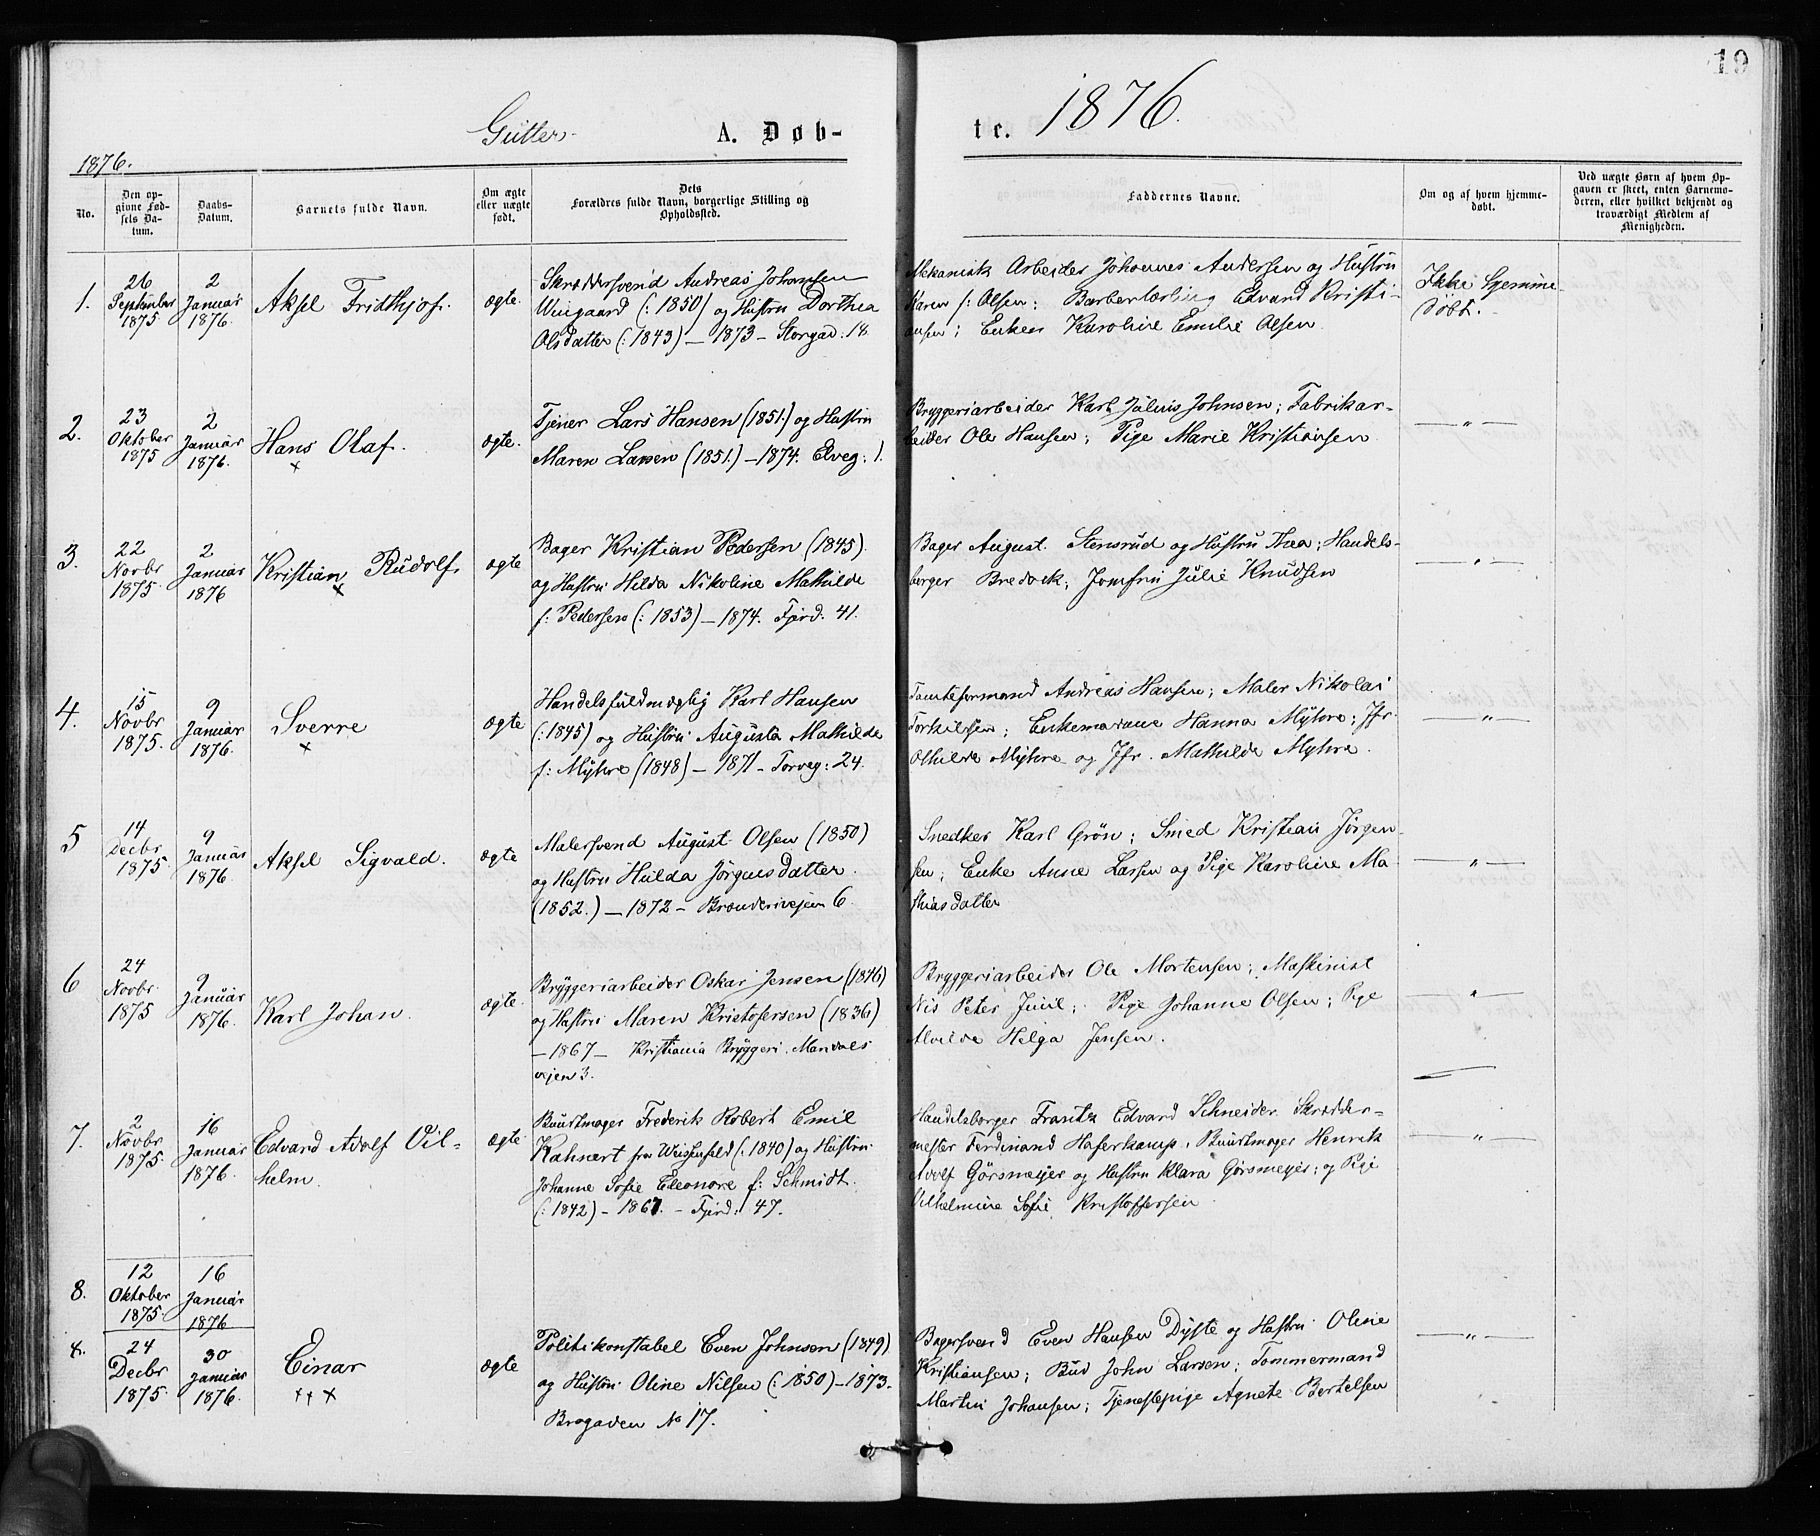 19
Gutter
A. Døb-
te.
1876.
1876.
No.
Den op-
givne Fød-
sels Da-
tum.
Daabs-
Datum.
Barnets fulde Navn.
Om ægte
eller uægte
født.
Dets
Forældres fulde Navn, borgerlige Stilling og
Opholdssted.
Faddernes Navne.
Om og af hvem hjemme-
døbt.
Ved uægte Børn af hvem Op-
gaven er skeet, enten Barnemo-
deren, eller hvilket bekjendt og
troværdigt Medlem af
Menigheden.
1.
26
September
1875
2
Januar
1876.
Aksel Fridthjof.
ægte.
Skræddersvend Andreas Johansen
Wiigaard (: 1850) og Hustru Dorthea
Olsdatter (: 1843) — 1873 — Storgad. 18
Mekanisk Arbeider Johannes Andersen og Hustru
Karen f: Olsen; Barberlærling Edvard Kristi-
ansen; Enken Karoline Emilie Olsen.
Ikke hjemme
døbt.
2.
23
Oktober
1875
2
Januar
1876.
Hans Olaf.
×
ægte.
Tjener Lars Hansen (1851.) og Hustru
Maren Larsen (1851.) — 1874. Elveg: 1.
Bryggeriarbeider Karl Julius Johnsen; Fabrikar-
beider Ole Hansen; Pige Marie Kristiansen
— " —
3.
22
Novbr
1875.
2
Januar
1876
Kristian Rudolf.
×
ægte
Bager Kristian Pedersen (1845).
og Hustru Hilda Nikoline Mathilde
f: Pedersen (: 1853) — 1874. Fjerd. 41.
Bager August Stensrud og Hustru Thea; Handels-
borger Bredock; Jomfru Julie Knudsen
— " —
4.
15
Novbr
1875.
9
Januar
1876.
Sverre
×
ægte
Handelsfuldmægtig Karl Hansen
(: 1845) og Hustru Augusta Mathilde
f: Myhre (1848) — 1871 — Torveg: 24.
Tomteformand Andreas Hansen; Maler Nikolai
Torkilsen; Enkemadame Hanna Myhre; Jfr.
Othilde Myhre og Jfr. Mathilde Myhre.
— " —
5
14
Decbr
1875.
9
Januar
1876.
Aksel Sigvald.
ægte
Malersvend August Olsen (1850)
og Hustru Hulda Jörgensdatter.
(1852.) — 1872 — Brænderiveien 6.
Snedker Karl Grön; Smed Kristian Jörgen-
sen; Enke Anne Larsen og Pige Karoline Ma-
thiasdatter
— " —
6
24
Novbr
1875
9
Januar
1876.
Karl Johan.
ægte.
Bryggeriarbeider Oskar Jensen (1846)
og Hustru Maren Kristofersen (1836)
— 1867 — Kristiania Bryggeri. Mandals
vejen 3.
Bryggeriarbeider Ole Mortensen; Maskinist
Nis Peter Juul; Pige Johanne Olsen; Pige
Alvilde Helga Jensen.
— " —
7.
2
Novbr
1875.
16
Januar
1876.
Edvard Adolf Vil-
helm.
ægte
Buntmager Frederik Robert Emil
Kahnert fra Weissenfeld (: 1840) og Hustru
Johanne Sofie Eleonore f: Schmidt.
(: 1842) — 1867. — Fjerd: 47.
Handelsborger Frantz Edvard Schneider. Skrædder-
mester Ferdinand Haferkamp, Buntmager Henrik
Adolf Görsmeyer og Hustru Klara Görsmeyer; og Pige
Vilhelmine Sofie Kristoffersen
— " —
8.
12
Oktober
1875.
16
Januar
1876
8.
24
Decbr
1875
30
Januar
1876.
Einar
×× ×
ægte
Politikonstabel Even Johnsen (1849)
og Hustru Oline Nilsen (: 1850) — 1873.
Brogaden No 17.
Bagersvend Even Hansen Dyste og Hustru Oline
Kristiansen; Bud John Larsen; Tommermand
Martin Johansen; Tjenestepige Agnete Bertelsen
— " —